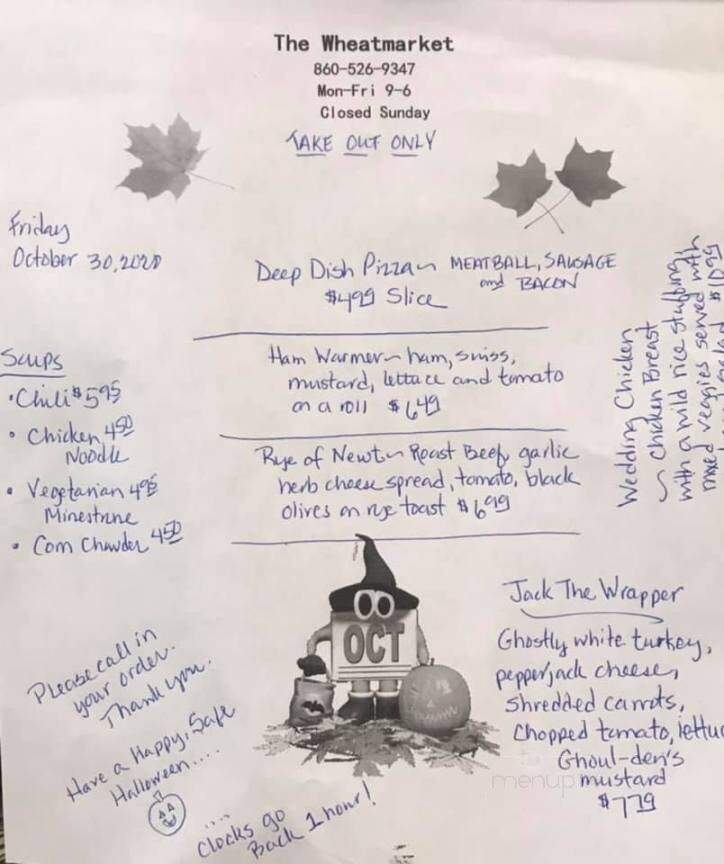 The Wheatmarket
860-526-9347
Mon-Fri 9-6
Closed Sunday
TAKE OUT ONLY
Friday
October 30, 2020
Deep Dish Pizza~ MEATBALL, SAUSAGE
and BACON
$4.99 Slice
Ham Warmer~ ham, swiss,
mustard, lettuce and tomato
on a roll $6.49
Rye of Newt~ Roast Beef, garlic
herb cheese spread, tomato, black
olives on rye toast $6.99
Soups
• Chili $5.95
• Chicken 4.50
Noodle
• Vegetarian 4.95
Minestrone
• Corn Chowder 4.50
Wedding Chicken
~ Chicken Breast
with a wild rice stuffing,
mixed veggies served with
$10.99
OCT
Jack The Wrapper
Ghostly white turkey,
pepperjack cheese,
shredded carrots,
chopped tomato, lettuc
Ghoul-den's
mustard
$7.79
Please call in
your order.
Thank you.
Have a Happy, Safe
Halloween....
....
Clocks go
Back 1 hour!
menup